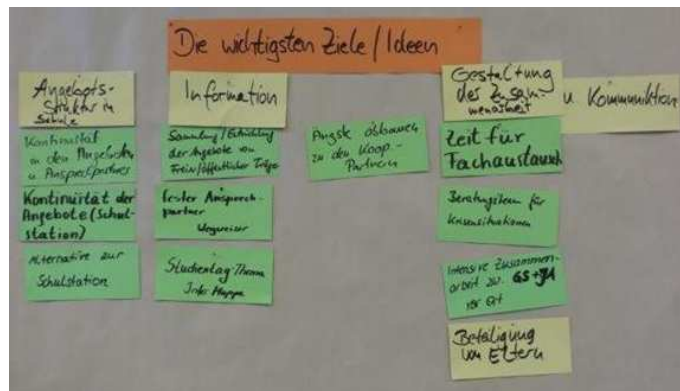 Die wichtigsten Ziele / Ideen
Angebots-
Struktur in
Schule
Kontinuität
in den Angeboten
u Ansprechpartner
Kontinuität der
Angebote (Schul-
station)
Alternative zur
Schulstation
Information
Sammlung /
der Angebote von
Frein/öffentlicher Träger
fester Ansprech-
partner
Wegweiser
Studientag-Thema
Info Mappe
Ängste abbauen
zu den Koop-
Partnern
Gestaltung
des Zusam-
menarbeit
u. Kommunikation
Zeit für
Fachaustausch
für
Krisensituationen
Intensive Zusammen-
arbeit zw. GS + JA
vor Ort
Beteiligung
von Eltern